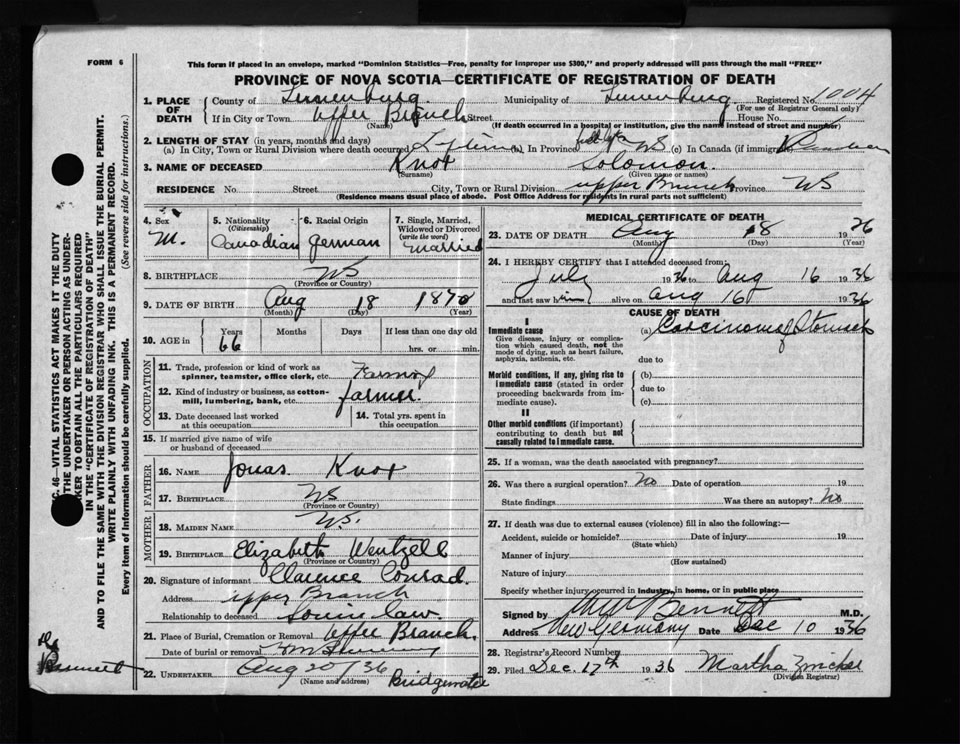 FORM 6
This form if placed in an envelope, marked "Dominion Statistics—Free, penalty for improper use $300," and properly addressed will pass through the mail "FREE"
PROVINCE OF NOVA SCOTIA—CERTIFICATE OF REGISTRATION OF DEATH
1. PLACE OF DEATH County of Lunenburg Municipality of Lunenburg Registered No. 1004
(For use of Registrar General only)
If in City or Town Upper Branch Street House No.
(Name) (If death occurred in a hospital or institution, give the name instead of street and number)
2. LENGTH OF STAY (in years, months and days)
(a) In City, Town or Rural Division where death occurred Lifetime (b) In Province NS (c) In Canada (if immigrant)
3. NAME OF DECEASED Knox Solomon
(Surname) (Given name or names)
RESIDENCE No Street City, Town or Rural Division upper Branch Province NS
(Residence means usual place of abode. Post Office Address for residents in rural parts not sufficient)
4. Sex M.
5. Nationality (Citizenship) Canadian
6. Racial Origin German
7. Single, Married, Widowed or Divorced (write the word) married
8. BIRTHPLACE NS
(Province or Country)
9. DATE OF BIRTH Aug 18 1870
(Month) (Day) (Year)
10. AGE in Years Months Days If less than one day old
66 hrs. or min.
OCCUPATION
11. Trade, profession or kind of work as spinner, teamster, office clerk, etc. Farming
12. Kind of industry or business, as cotton-mill, lumbering, bank, etc. farmer.
13. Date deceased last worked at this occupation
14. Total yrs. spent in this occupation
15. If married give name of wife or husband of deceased
FATHER
16. NAME Jonas Knox
17. BIRTHPLACE NS
(Province or Country)
MOTHER
18. MAIDEN NAME NS.
19. BIRTHPLACE Elizabeth Wentzell
(Province or Country)
20. Signature of informant Clarence Conrad.
Address upper Branch
Relationship to deceased Son in law.
21. Place of Burial, Cremation or Removal Upper Branch.
Date of burial or removal
22. UNDERTAKER Aug 20/36
(Name and address) Bridgewater
MEDICAL CERTIFICATE OF DEATH
23. DATE OF DEATH Aug 18 1936
(Month) (Day) (Year)
24. I HEREBY CERTIFY that I attended deceased from
July 1936 to Aug 16 1936
and last saw him alive on aug 16 1936
CAUSE OF DEATH
I
Immediate cause (a) Carcinoma of Stomach
Give disease, injury or complication which caused death, not the mode of dying, such as heart failure, asphyxia, asthenia, etc.
due to
Morbid conditions, if any, giving rise to immediate cause (stated in order proceeding backwards from immediate cause).
(b)
due to
(c)
II
Other morbid conditions (if important) contributing to death but not causally related to immediate cause.
25. If a woman, was the death associated with pregnancy?
26. Was there a surgical operation? No Date of operation 19
State findings Was there an autopsy? No
27. If death was due to external causes (violence) fill in also the following:—
Accident, suicide or homicide? Date of injury 19
(State which)
Manner of injury
(How sustained)
Nature of injury
Specify whether injury occurred in industry, in home, or in public place
Signed by Bennett M.D.
Address New Germany Date Dec 10 1936
28. Registrar's Record Number
29. Filed Dec. 17th 1936 Martha
(Division Registrar)
SEC. 46—VITAL STATISTICS ACT MAKES IT THE DUTY
OF THE UNDERTAKER OR PERSON ACTING AS UNDERTAKER TO OBTAIN ALL THE PARTICULARS REQUIRED
IN THE "CERTIFICATE OF REGISTRATION OF DEATH"
AND TO FILE THE SAME WITH THE DIVISION REGISTRAR WHO SHALL ISSUE THE BURIAL PERMIT.
WRITE PLAINLY WITH UNFADING INK. THIS IS A PERMANENT RECORD.
Every item of Information should be carefully supplied. (See reverse side for instructions.)
Bennett